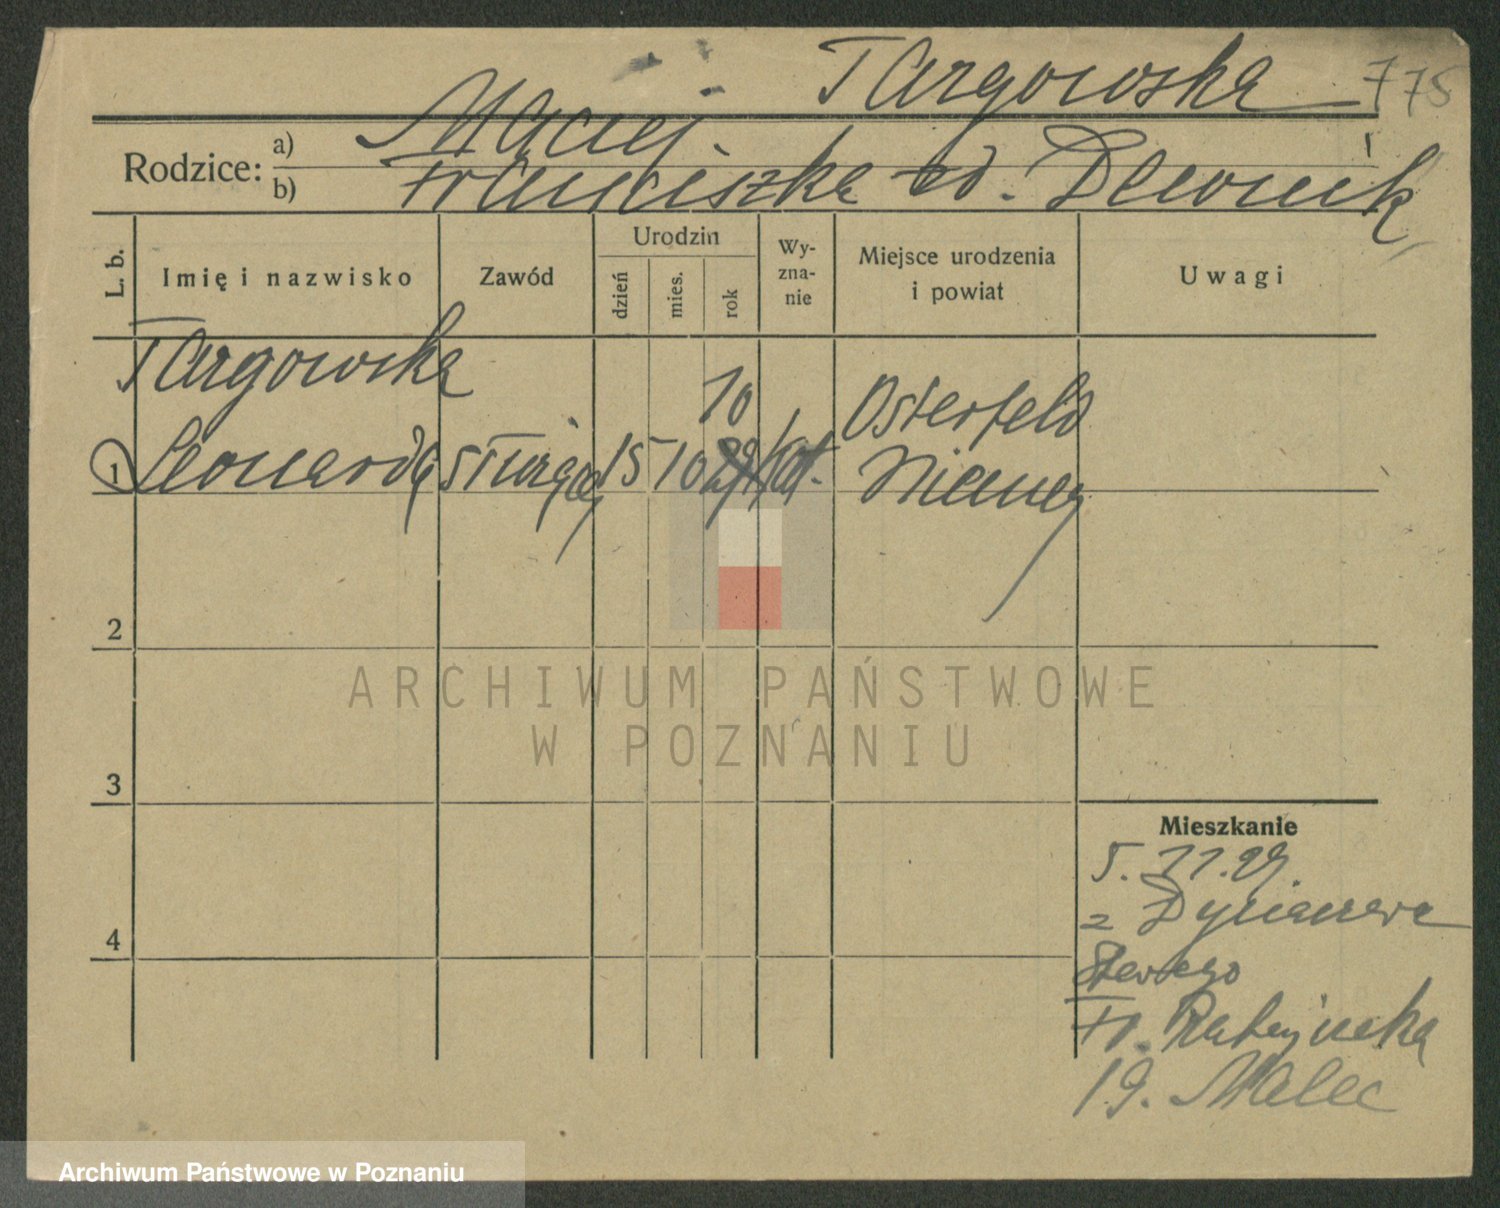 Targowska 775
Rodzice: a) Maciej
b) Franciszka
L. b.
Imię i nazwisko
Zawód
Urodzin
dzień
mies.
rok
Wy-
zna-
nie
Miejsce urodzenia
i powiat
Uwagi
Targowska
10
Osterfeld
1 Leonarda służąca 15 10 29 kat. Niemcy
2
ARCHIWUM PAŃSTWOWE
W POZNANIU
3
Mieszkanie
5. 11. 29.
z
4
Fr. Ratajczaka
19. Malec
Archiwum Państwowe w Poznaniu